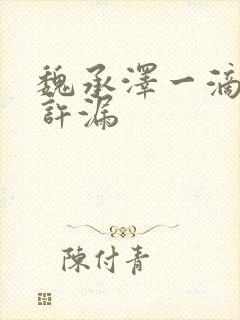 魏承澤一滴
許漏
陳付青